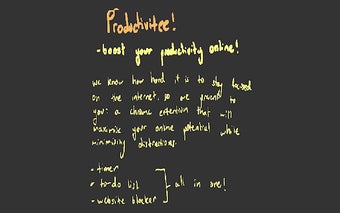 Productivitee!
- boost your productivity online!
we know how hard it is to stay focused
on the internet, so we present to
you: a chrome extention that will
maximize your online potential while
minimising distractions.
- timer
- to-do list } all in one!
- website blocker